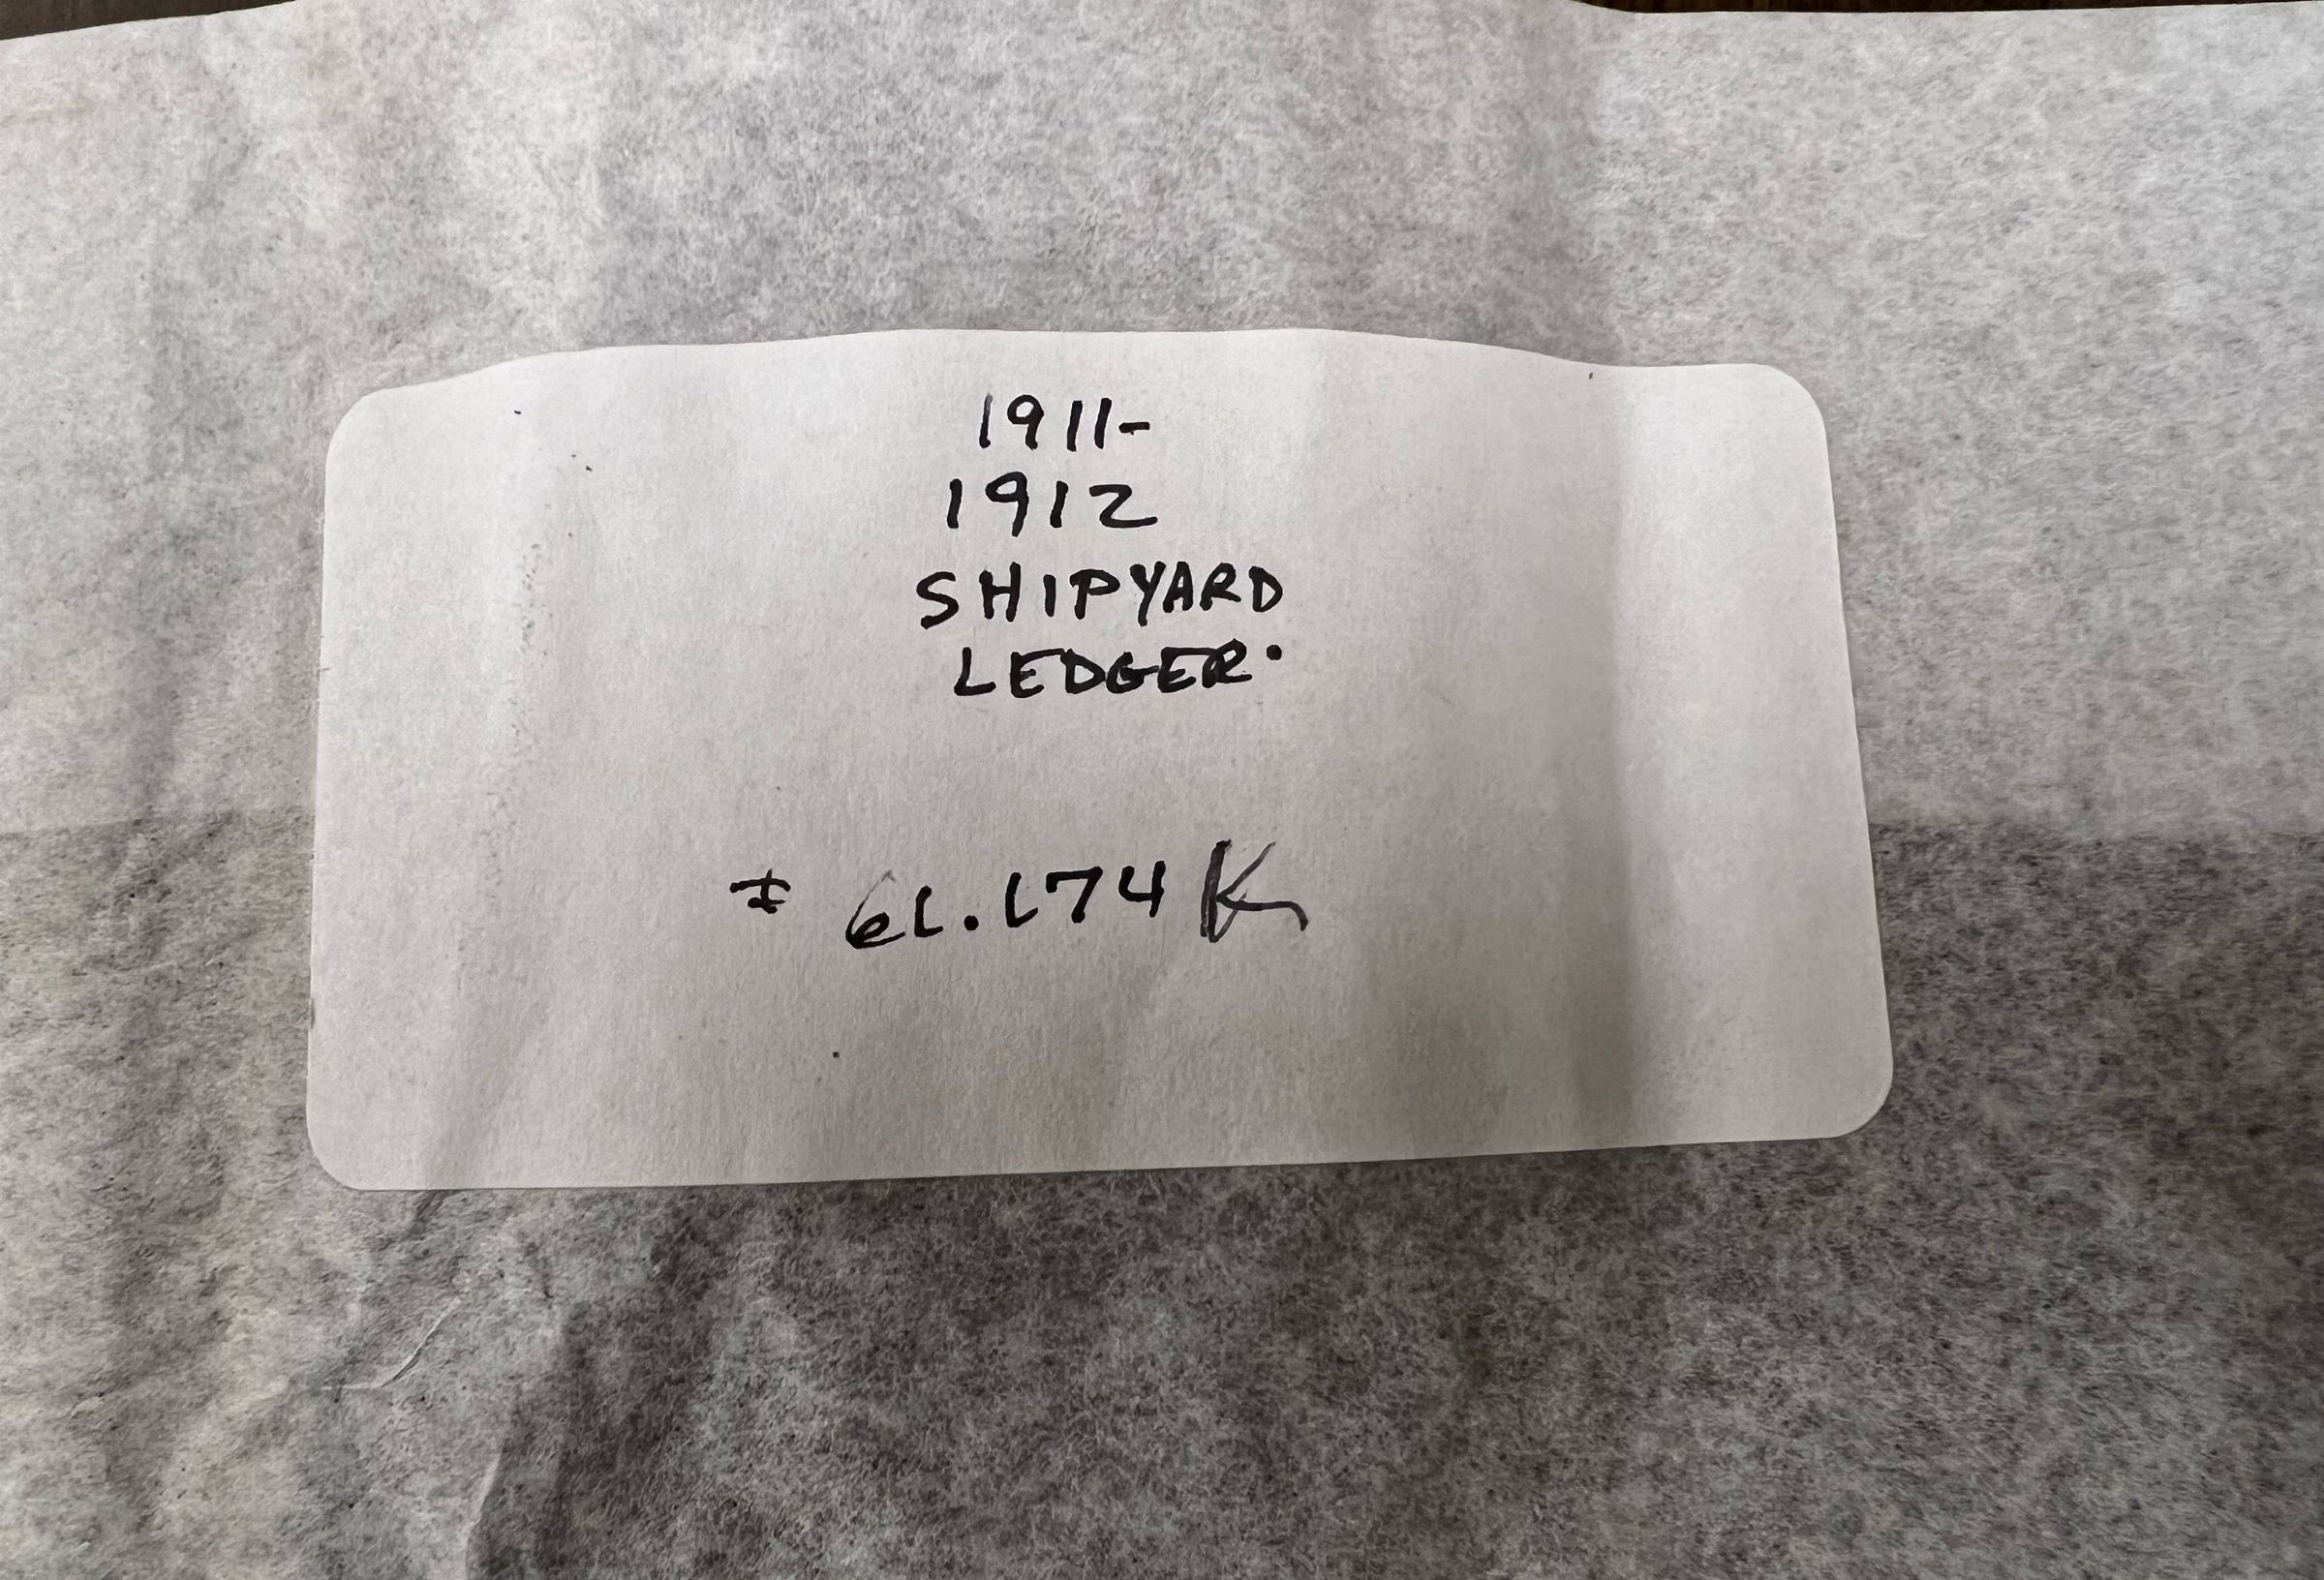 1911-
1912
SHIPYARD
LEDGER.
# 61.174 K